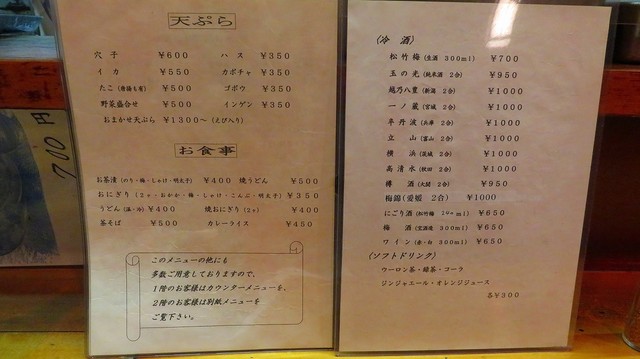 天ぷら
穴子 ¥600 ハス ¥350
イカ ¥550 カボチャ ¥350
たこ ¥500 ゴボウ ¥350
野菜盛合せ ¥500 インゲン ¥350
おまかせ天ぷら ¥1300〜 (えび入り)
お食事
お茶漬 (のり・梅・しゃけ・明太子) ¥400 焼うどん ¥500
おにぎり (2ヶ・おかか・梅・しゃけ・こんぶ・明太子) ¥350
うどん (温・冷) ¥400 焼おにぎり (2ヶ) ¥400
茶そば ¥500 カレーライス ¥450
このメニューの他にも
多数ご用意しておりますので、
1階のお客様はカウンターメニューを、
2階のお客様は別紙メニューを
ご覧下さい。
700円
(冷 酒)
松竹梅 (生酒 300ml) ¥700
玉の光 (純米酒 2合) ¥950
越乃八豊 (新潟 2合) ¥1000
一ノ蔵 (宮城 2合) ¥1000
辛丹波 (兵庫 2合) ¥1000
立山 (富山 2合) ¥1000
横浜 (茨城 2合) ¥1000
高清水 (秋田 2合) ¥1000
樽酒 (大関 2合) ¥950
梅錦 (愛媛 2合) ¥1000
にごり酒 (松竹梅 ml) ¥650
梅酒 (300ml) ¥650
ワイン (赤・白 300ml) ¥650
(ソフトドリンク)
ウーロン茶・緑茶・コーラ
ジンジャエール・オレンジジュース
各¥300